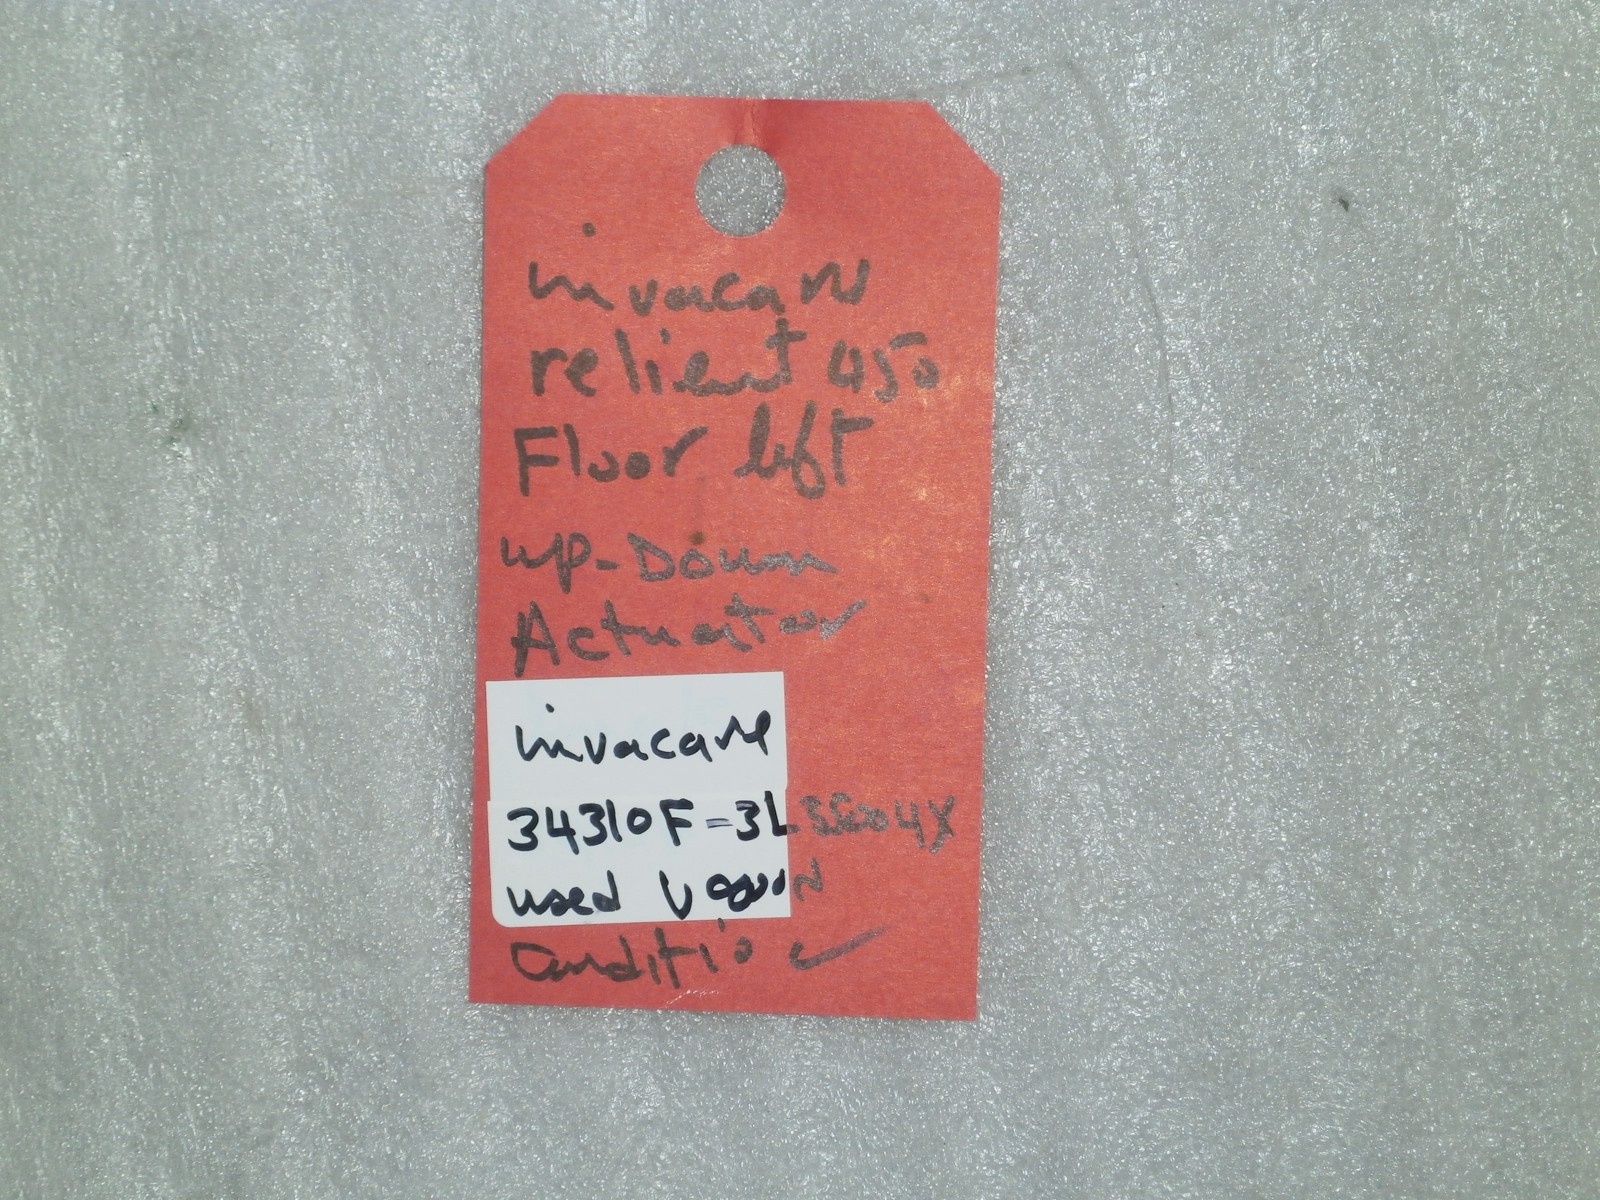 invacare
relient 450
Floor lift
up-Down
Actuator
invacare
34310F-3L
used V good
condition